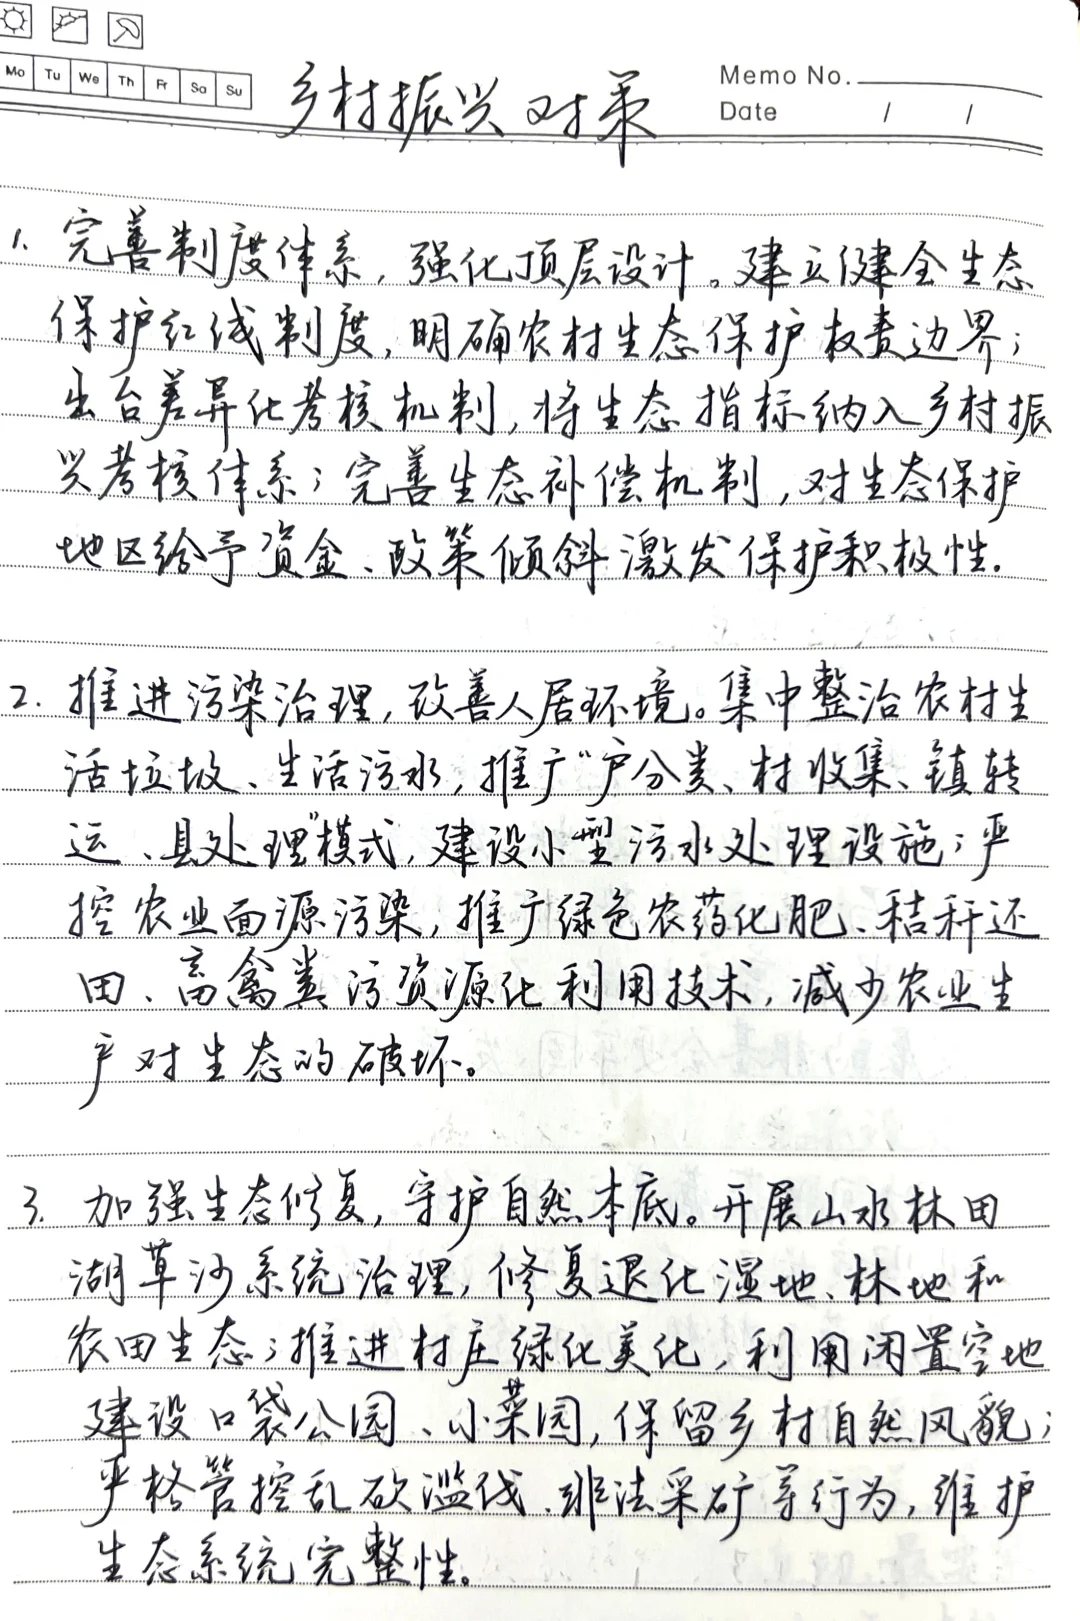 Mo Tu We Th Fr Sa Su
Memo No.
Date / /
乡村振兴对策
1. 完善制度体系，强化顶层设计。建立健全生态
保护红线制度，明确农村生态保护权责边界；
出台差异化考核机制，将生态指标纳入乡村振
兴考核体系；完善生态补偿机制，对生态保护
地区给予资金、政策倾斜激发保护积极性.
2. 推进污染治理，改善人居环境。集中整治农村生
活垃圾、生活污水，推广“户分类、村收集、镇转
运、县处理”模式，建设小型污水处理设施；严
控农业面源污染，推广绿色农药化肥、秸秆还
田、畜禽粪污资源化利用技术，减少农业生
产对生态的破坏。
3. 加强生态修复，守护自然本底。开展山水林田
湖草沙系统治理，修复退化湿地、林地和
农田生态；推进村庄绿化美化，利用闲置空地
建设口袋公园、小菜园，保留乡村自然风貌；
严格管控乱砍滥伐、非法采矿等行为，维护
生态系统完整性。